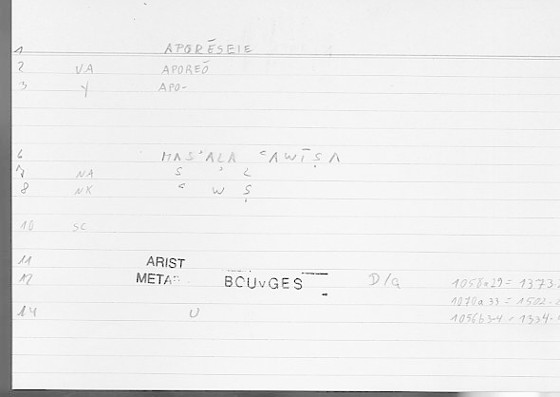 1 APORĒSEIE
2 VA APOREŌ
3 Y APO-
6 MASʾALA ʿAWĪṢA
7 NA S ʾ L
8 NK ʿ W Ṣ
10 SC
11 ARIST
12 META BOUvGES D/G 1058a29= 1373.
1070a33 = 1502.
14 U 1056b3-4 = 1334.